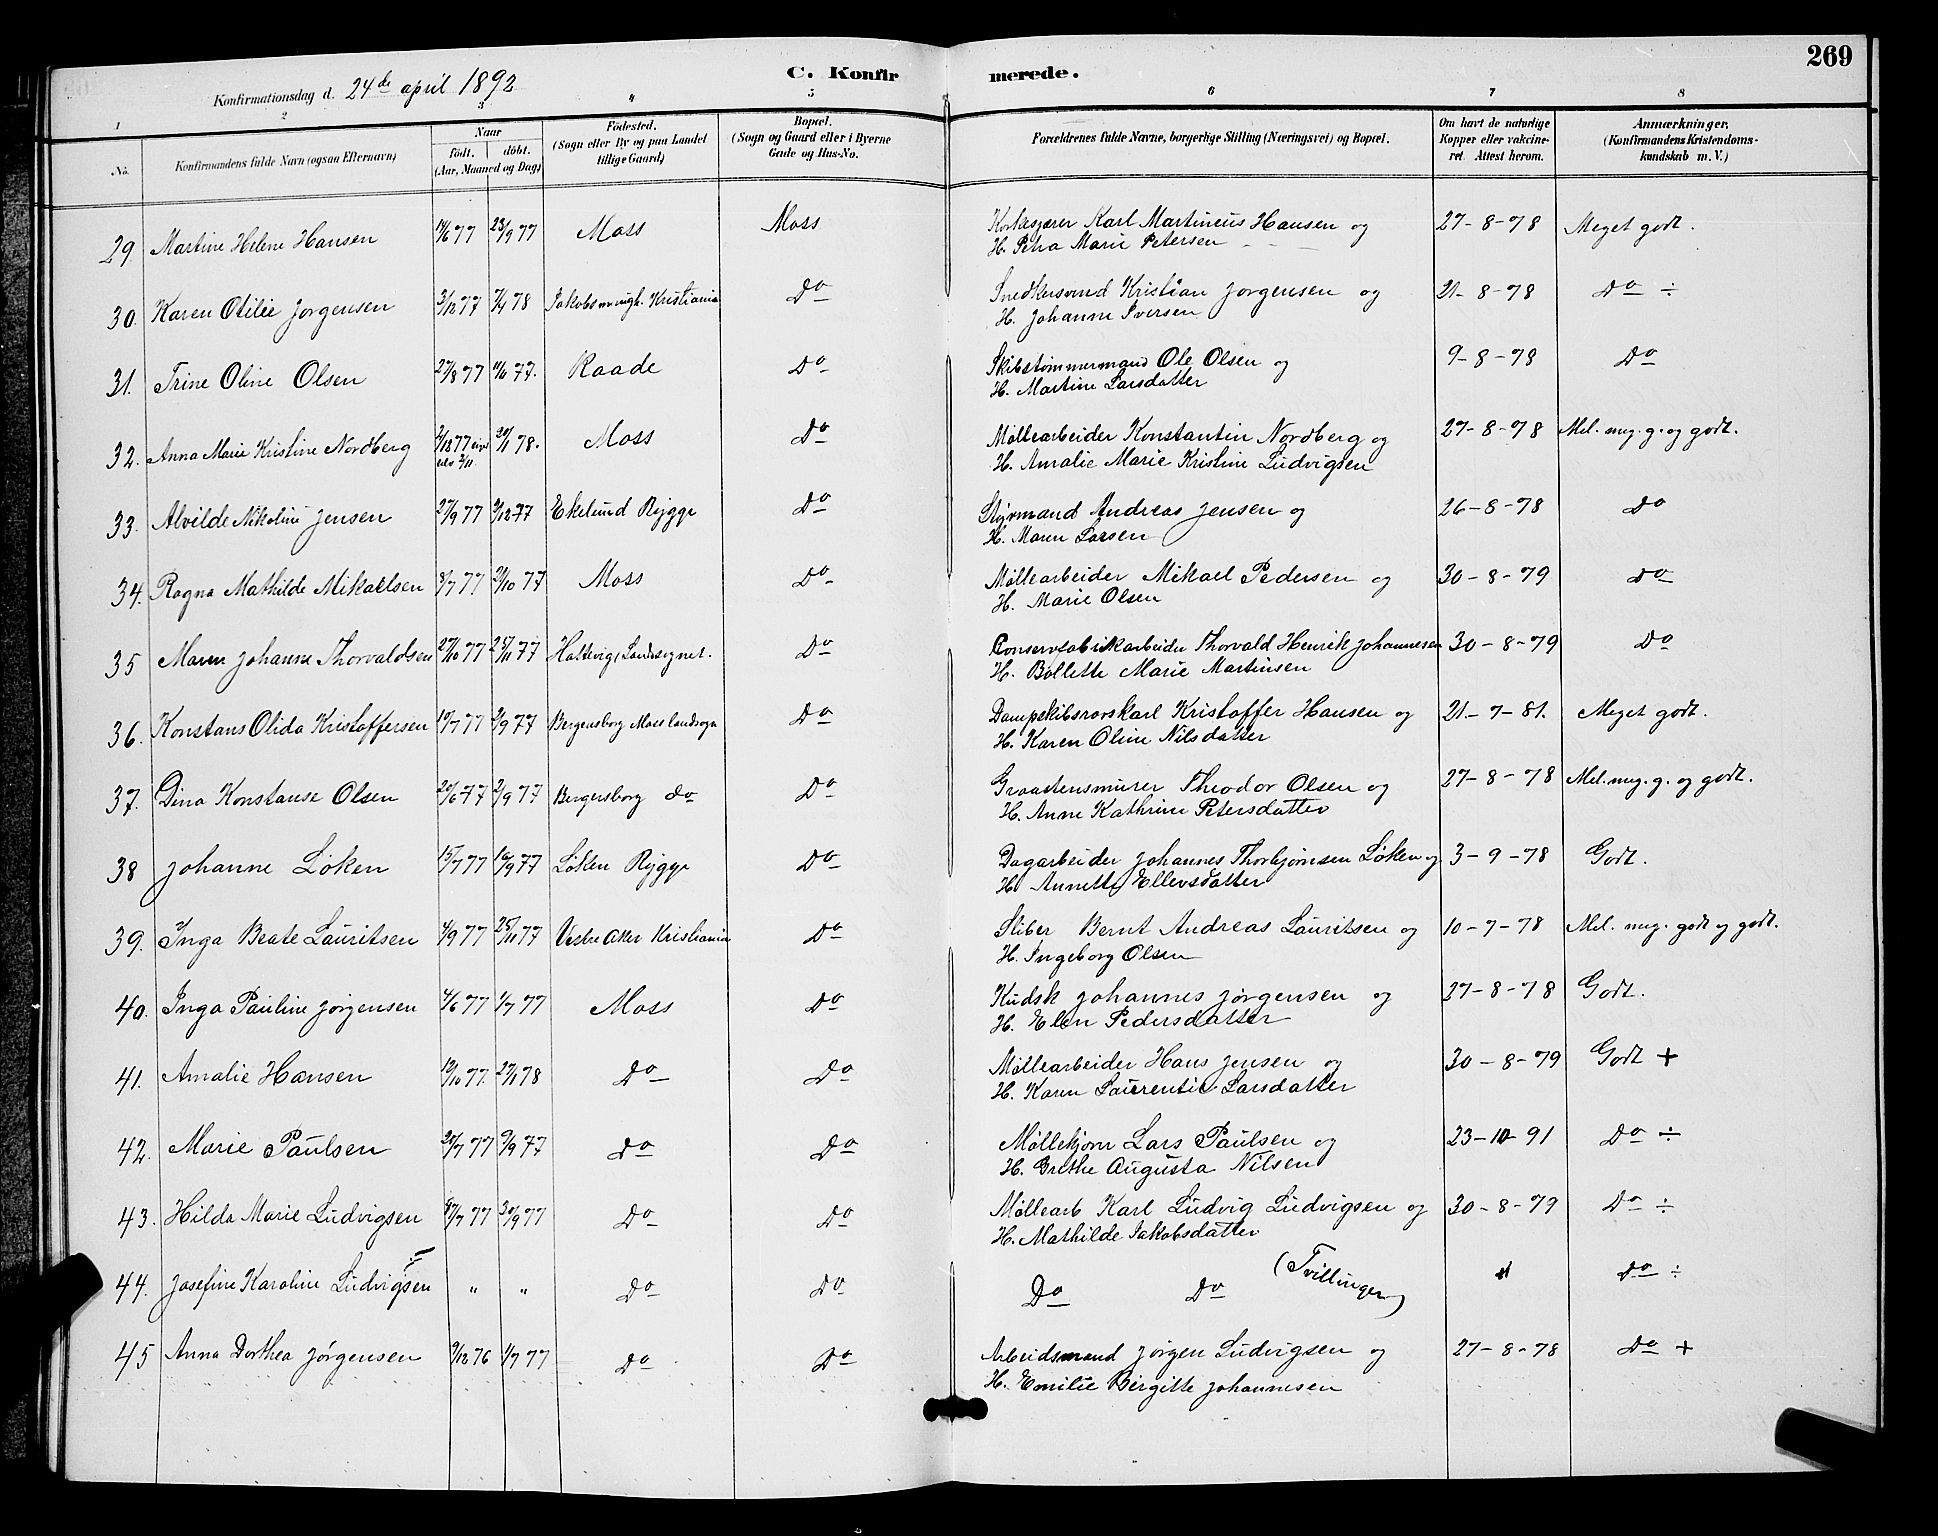 269
C. Konfirmerede.
Konfirmationsdag d. 24de april 1892
1 2 3 4 5 6 7 8
No. Konfirmandens fulde Navn (ogsaa Efternavn) Naar födt. döbt. (Aar, Maaned og Dag) Födested. (Sogn eller By og paa Landet tillige Gaard) Bopæl. (Sogn og Gaard eller i Byerne Gade og Hus-No. Forældrenes fulde Navne, borgerlige Stilling (Næringsvei) og Bopæl. Om havt de naturlige Kopper eller vakcineret. Attest herom. Anmærkninger. (Konfirmandens Kristendomskundskab m. V.)
29. Martine Helene Hansen 14/6 77 23/9 77 Moss Moss Korkskjærer Karl Martineus Hansen og 27-8-78 Meget godt.
H. Petra Marie Petersen
30. Karen Otilie Jørgensen 3/12 77 7/4 78 Jakobsmenigh. Kristiania Do Snedkersvend Kristian Jørgensen og 21-8-78 Do ÷
H. Johanne Iversen
31. Trine Oline Olsen 27/8 77 77. Raade Do Skibstømmermand Ole Olsen og 9-8-78 Do
H. Martine Larsdatter
32. Anna Marie Kristine Nordberg 2/12 77 20/1 78. Moss Do Møllearbeider Konstantin Nordberg og 27-8-78 Mel. meg. g. og godt.
H. Amalie Marie Kristine Ludvigsen
33. Alvilde Nikoline Jensen 27/9 77 2/12 77 Ekelund Rygge Do Styrmand Andreas Jensen og 26-8-78 Do
H. Maren Larsen
34. Ragna Mathilde Mikaelsen 8/7 77 21/10 77 Moss Do Møllearbeider Mikael Pedersen og 30-8-79 Do
H. Marie Olsen
35 Maren Johanne Thorvaldsen 27/10 77 25/11 77 Landsognet. Do Conservfabrikarbeider Thorvald Henrik Johannesen 30-8-79 Do
H. Bollette Marie Martinsen
36. Konstans Olida Kristoffersen 10/7 77 2/9 77 Bergersborg Moss landsogn Do Dampskibsrorskarl Kristoffer Hansen og 21-7-81. Meget godt.
H. Karen Oline Nilsdatter
37. Dina Konstanse Olsen 20/6 77 2/9 77 Bergersborg do Do Graastensmurer Theodor Olsen og 27-8-78 Mel. meg. g. og godt.
H. Anne Kathrine Petersdatter
38 Johanne Løken 15/7 77 16/9 77 Løken Rygge Do Dagarbeider Johannes Thorbjørnsen Løken og 3-9-78 Godt.
H. Annette Ellevsdatter
39. Inga Beate Lauritsen 4/9 77 25/11 77 Vestre Aker Kristiania Do Sliber Bernt Andreas Lauritsen og 10-7-78 Mel. meg. godt og godt.
H. Ingeborg Olsen
40. Inga Pauline Jørgensen 4/6 77 1/7 77 Moss Do Kudsk Johannes Jørgensen og 27-8-78 Godt.
H. Elen Pedersdatter
41. Amalie Hansen 12/10 77. 27/1 78 Do Do Møllearbeider Hans Jensen og 30-8-79 Godt +
H. Karen Laurentie Larsdatter
42. Marie Paulsen 25/7 77 9/9 77 Do Do Møllekjører Lars Paulsen og 23-10-91 Do ÷
H. Grethe Augusta Nilsen
43. Hilda Marie Ludvigsen 8/7 77 30/9 77 Do Do Møllearb Karl Ludvig Ludvigsen og 30-8-79 Do ÷
H. Mathilde Jakobsdatter
44. Josefine Karoline Ludvigsen " " Do Do Do Do (Tvillinger) " Do ÷
45 Anna Dorthea Jørgensen 9/12 76 1/7 77 Do Do Arbeidsmand Jørgen Ludvigsen og 27-8-78 Do +
H. Emilie Birgitte Johannesen